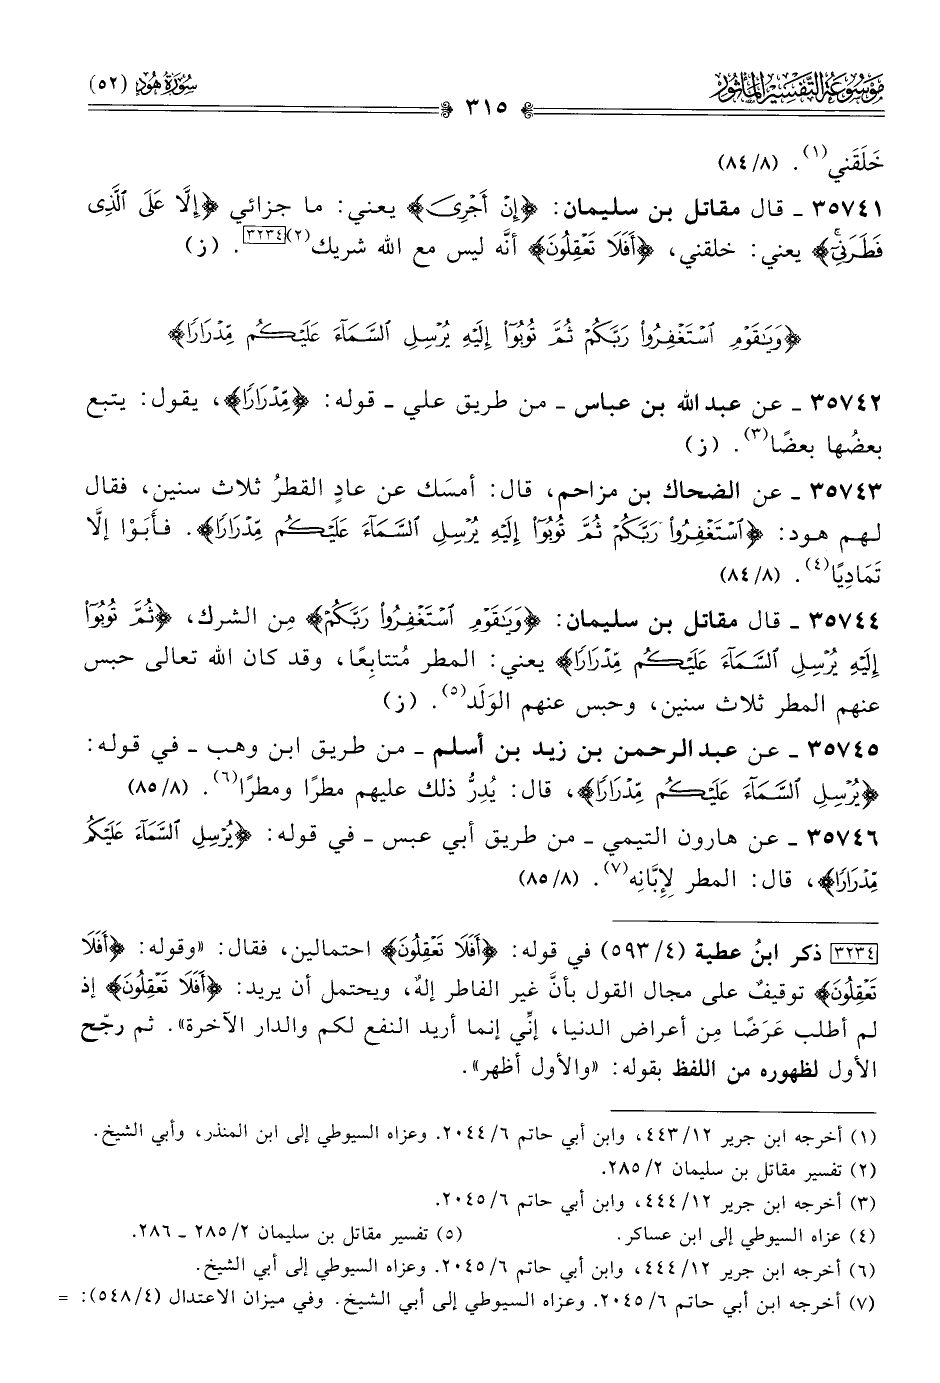 مَوْسُوعَةُ التَّفْسِيرِ المَأْثُورِ
سُورَةُ هُودٍ (٥٢)
٣١٥
خَلَقَني(١). (٨٤/٨)
٣٥٧٤١ ـ قال مقاتل بن سليمان: ﴿إِنْ أَجْرِىَ﴾ يعني: ما جزائي ﴿إِلَّا عَلَى الَّذِى
فَطَرَنِىٓ﴾ يعني: خلقني، ﴿أَفَلَا تَعْقِلُونَ﴾ أنَّه ليس مع الله شريك(٢)[٣٢٣٤]. (ز)
﴿وَيَٰقَوْمِ ٱسْتَغْفِرُوا۟ رَبَّكُمْ ثُمَّ تُوبُوٓا۟ إِلَيْهِ يُرْسِلِ ٱلسَّمَآءَ عَلَيْكُم مِّدْرَارًا﴾
٣٥٧٤٢ ـ عن عبد الله بن عباس ـ من طريق علي ـ قوله: ﴿مِّدْرَارًا﴾، يقول: يتبع
بعضُها بعضًا(٣). (ز)
٣٥٧٤٣ ـ عن الضحاك بن مزاحم، قال: أمسَك عن عادٍ القطرُ ثلاث سنين، فقال
لهم هود: ﴿ٱسْتَغْفِرُوا۟ رَبَّكُمْ ثُمَّ تُوبُوٓا۟ إِلَيْهِ يُرْسِلِ ٱلسَّمَآءَ عَلَيْكُم مِّدْرَارًا﴾. فأبَوْا إلَّا
تَمَادِيًا(٤). (٨٤/٨)
٣٥٧٤٤ ـ قال مقاتل بن سليمان: ﴿وَيَٰقَوْمِ ٱسْتَغْفِرُوا۟ رَبَّكُمْ﴾ مِن الشرك، ﴿ثُمَّ تُوبُوٓا۟
إِلَيْهِ يُرْسِلِ ٱلسَّمَآءَ عَلَيْكُم مِّدْرَارًا﴾ يعني: المطر مُتتابِعًا، وقد كان الله تعالى حبس
عنهم المطر ثلاث سنين، وحبس عنهم الوَلَد(٥). (ز)
٣٥٧٤٥ ـ عن عبد الرحمن بن زيد بن أسلم ـ من طريق ابن وهب ـ في قوله:
﴿يُرْسِلِ ٱلسَّمَآءَ عَلَيْكُم مِّدْرَارًا﴾، قال: يُدِرُّ ذلك عليهم مطرًا ومطرًا(٦). (٨٥/٨)
٣٥٧٤٦ ـ عن هارون التيمي ـ من طريق أبي عبس ـ في قوله: ﴿يُرْسِلِ ٱلسَّمَآءَ عَلَيْكُم
مِّدْرَارًا﴾، قال: المطر لِإبَّانِه(٧). (٨٥/٨)
[٣٢٣٤] ذكر ابنُ عطية (٥٩٣/٤) في قوله: ﴿أَفَلَا تَعْقِلُونَ﴾ احتمالين، فقال: «وقوله: ﴿أَفَلَا
تَعْقِلُونَ﴾ توقيفٌ على مجال القول بأنَّ غير الفاطر إلهٌ، ويحتمل أن يريد: ﴿أَفَلَا تَعْقِلُونَ﴾ إذ
لم أطلب عَرَضًا مِن أعراض الدنيا، إنِّي إنما أريد النفع لكم والدار الآخرة». ثم رجّح
الأول لظهوره من اللفظ بقوله: «والأول أظهر».
(١) أخرجه ابن جرير ٤٤٣/١٢، وابن أبي حاتم ٢٠٤٤/٦. وعزاه السيوطي إلى ابن المنذر، وأبي الشيخ.
(٢) تفسير مقاتل بن سليمان ٢٨٥/٢.
(٣) أخرجه ابن جرير ٤٤٤/١٢، وابن أبي حاتم ٢٠٤٥/٦.
(٤) عزاه السيوطي إلى ابن عساكر. (٥) تفسير مقاتل بن سليمان ٢٨٥/٢ ـ ٢٨٦.
(٦) أخرجه ابن جرير ٤٤٤/١٢، وابن أبي حاتم ٢٠٤٥/٦. وعزاه السيوطي إلى أبي الشيخ.
(٧) أخرجه ابن أبي حاتم ٢٠٤٥/٦. وعزاه السيوطي إلى أبي الشيخ. وفي ميزان الاعتدال (٥٤٨/٤): =